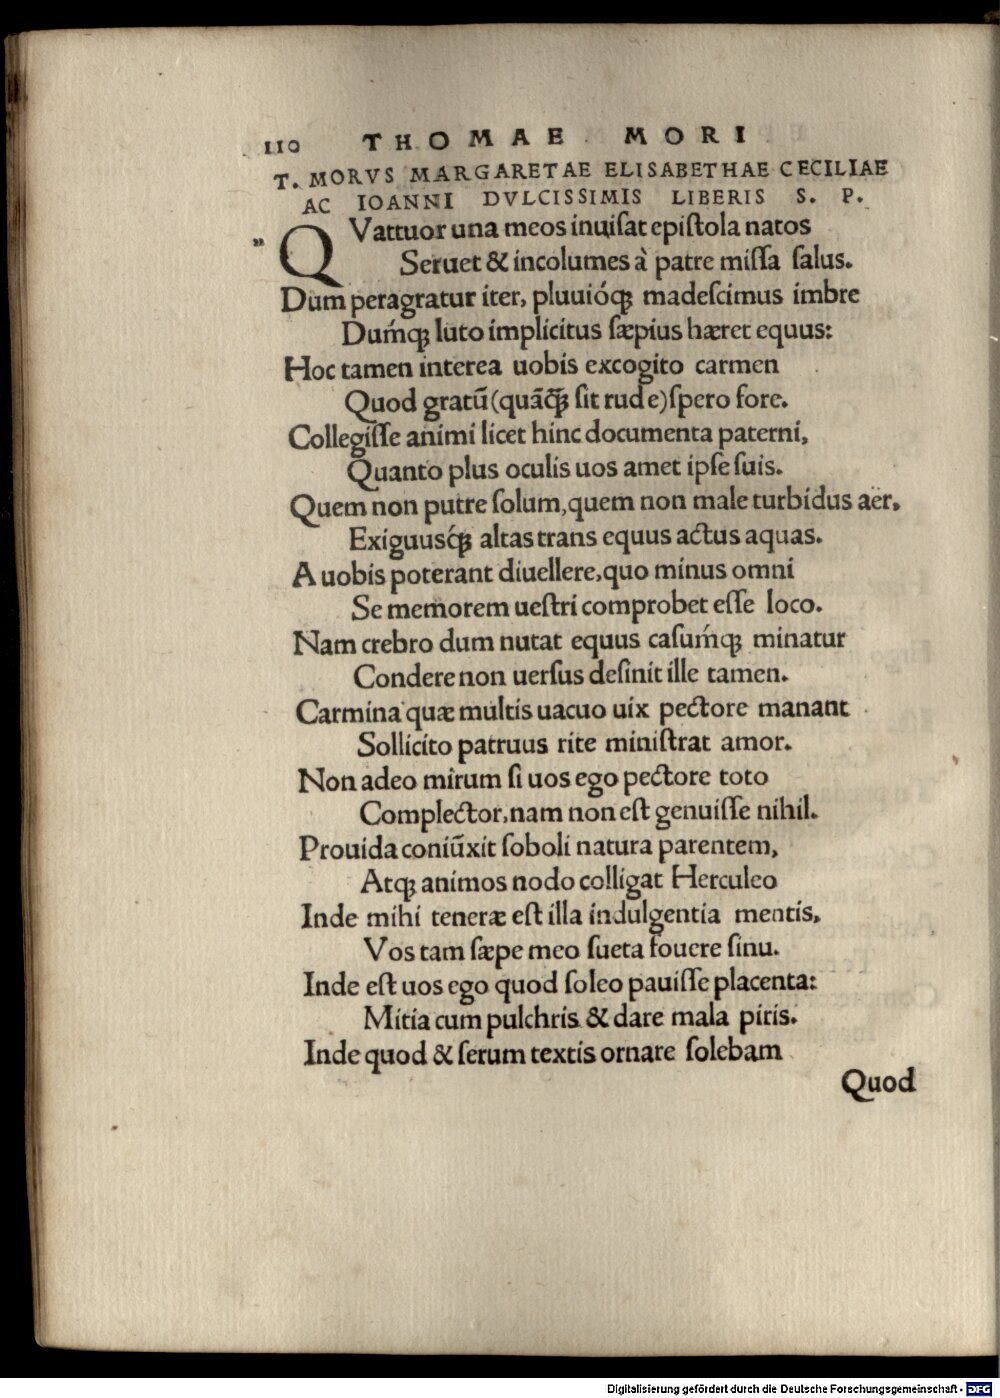 110 THOMAE MORI
T. MORVS MARGARETAE ELISABETHAE CECILIAE
AC IOANNI DVLCISSIMIS LIBERIS S. P.
QVattuor una meos inuiſat epiſtola natos
Seruet & incolumes à patre miſſa ſalus.
Dum peragratur iter, pluuióq; madeſcimus imbre
Duḿq; luto implicitus ſæpius hæret equus:
Hoc tamen interea uobis excogito carmen
Quod gratũ(quãq̃; ſit rude)ſpero fore.
Collegiſſe animi licet hinc documenta paterni,
Quanto plus oculis uos amet ipſe ſuis.
Quem non putre ſolum,quem non male turbidus aër,
Exiguusq́; altas trans equus actus aquas.
A uobis poterant diuellere,quo minus omni
Se memorem ueſtri comprobet eſſe loco.
Nam crebro dum nutat equus caſuḿq; minatur
Condere non uerſus deſinit ille tamen.
Carmina quæ multis uacuo uix pectore manant
Sollicito patruus rite miniſtrat amor.
Non adeo mirum ſi uos ego pectore toto
Complector,nam non eſt genuiſſe nihil.
Prouida coniũxit ſoboli natura parentem,
Atq; animos nodo colligat Herculeo
Inde mihi teneræ eſt illa indulgentia mentis,
Vos tam ſæpe meo ſueta fouere ſinu.
Inde eſt uos ego quod ſoleo pauiſſe placenta:
Mitia cum pulchris & dare mala piris.
Inde quod & ſerum textis ornare ſolebam
Quod
Digitalisierung gefördert durch die Deutsche Forschungsgemeinschaft - DFG